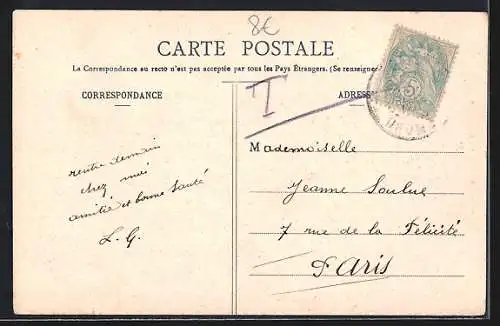 8€
CARTE POSTALE
La Correspondance au recto n'est pas acceptée par tous les Pays Étrangers. (Se renseigner
CORRESPONDANCE
ADRESSE
T
5
Mademoiselle
Jeanne Soulue
7 rue de la Félicité
Paris
rentre demain
chez moi
amitié et bonne santé
L. G.